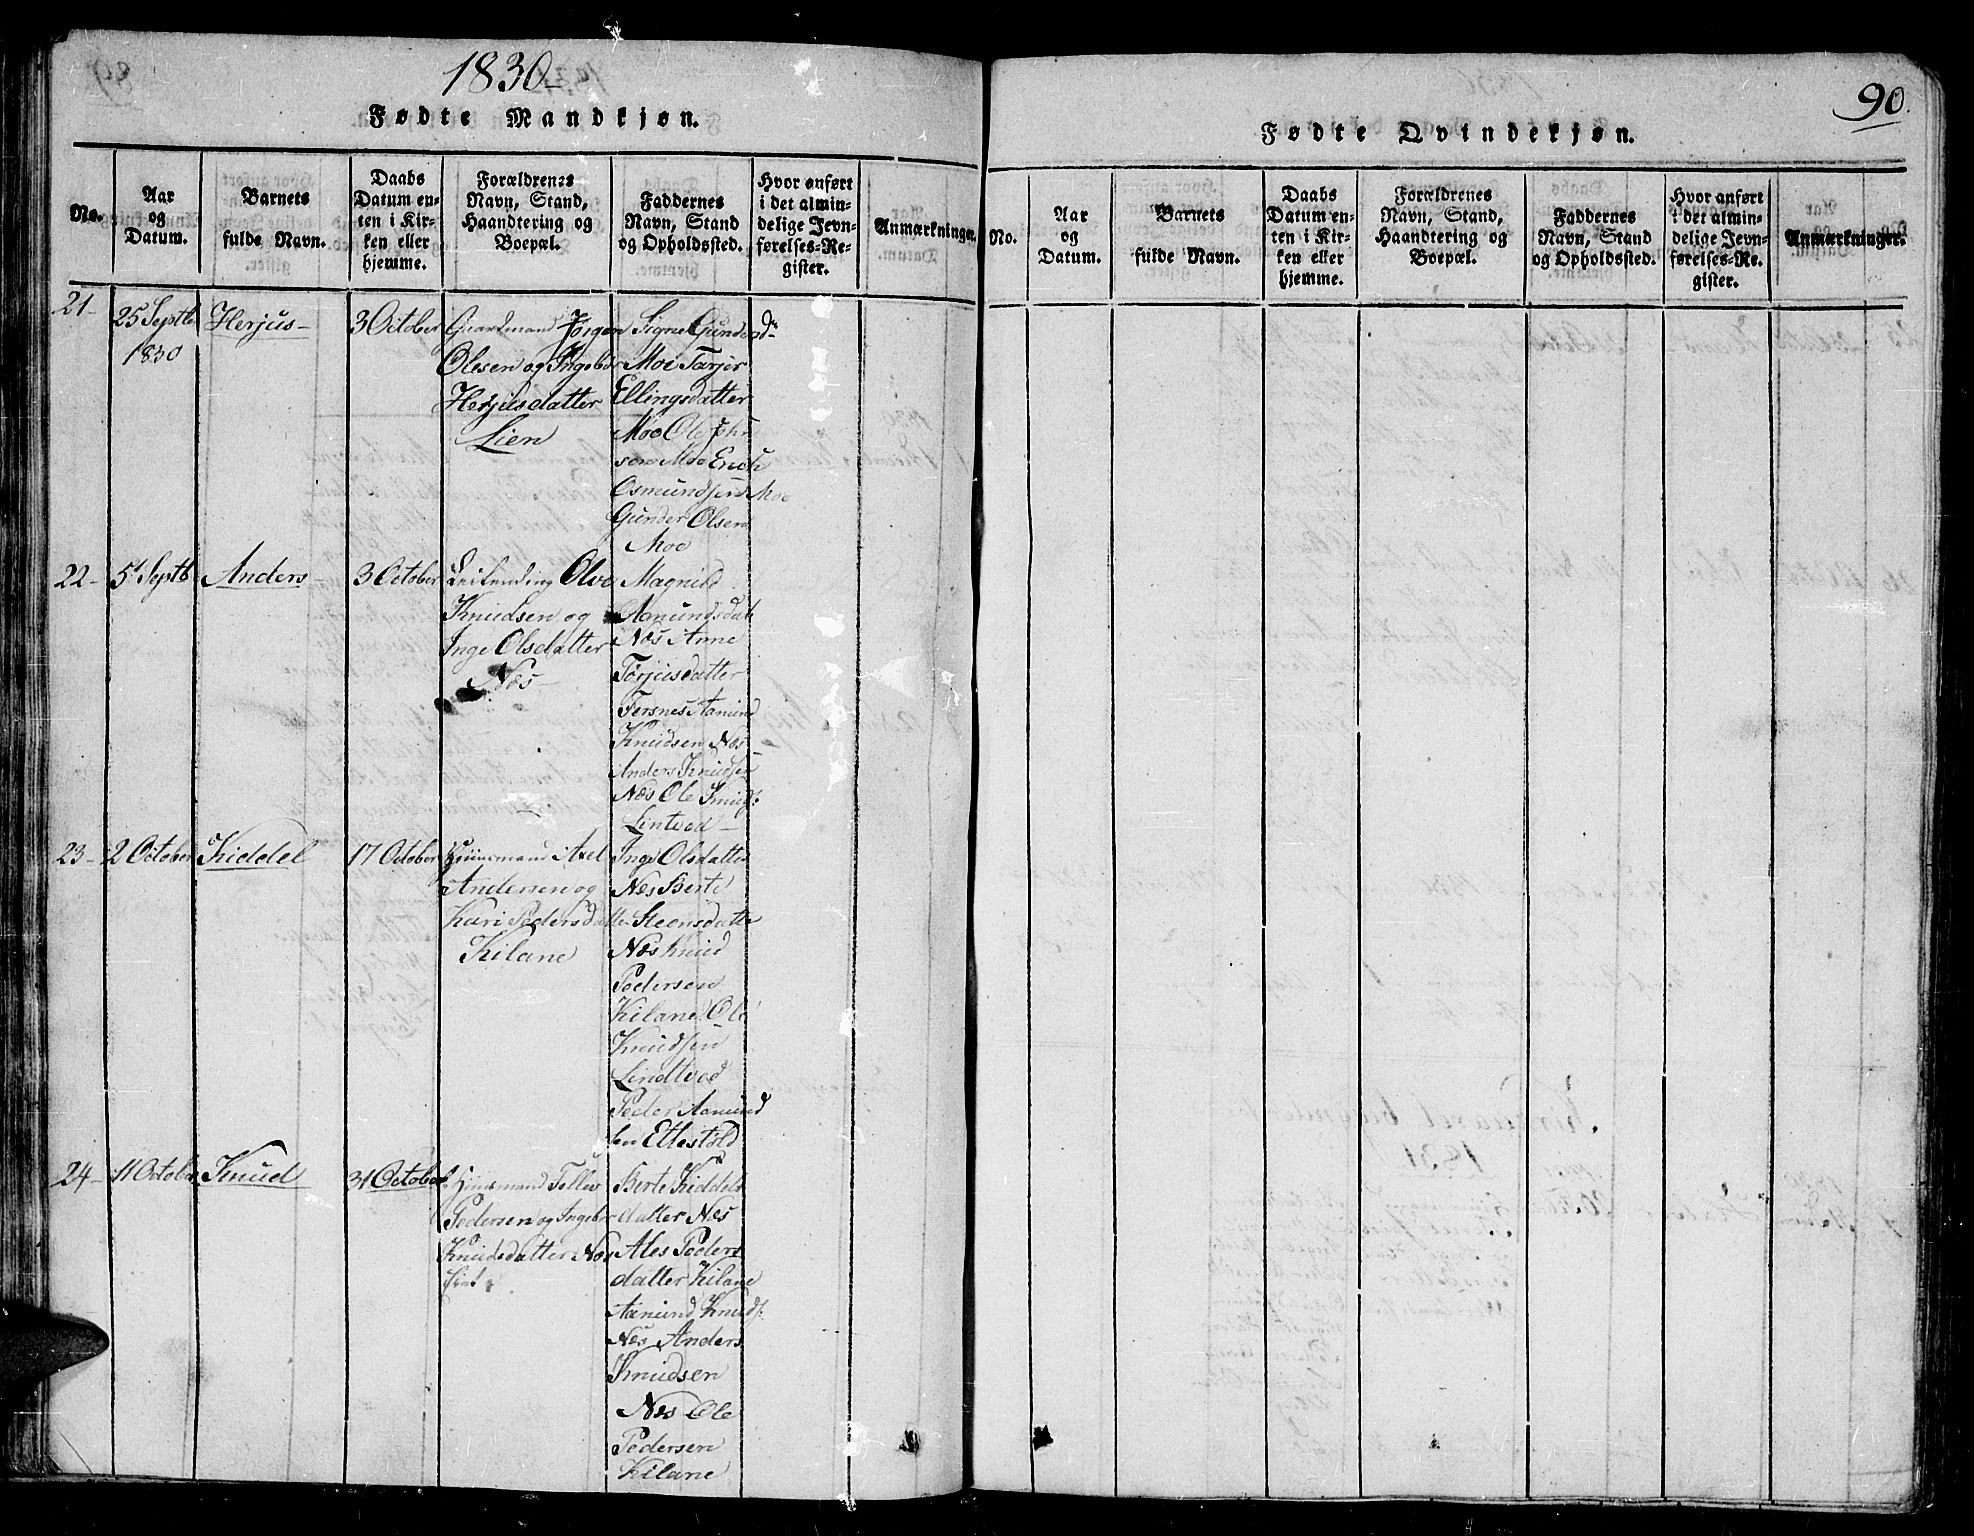 1830
Fødte Mandkjøn.
No.
Aar
og
Datum.
Barnets
fulde Navn.
Daabs
Datum en-
ten i Kir-
ken eller
hjemme.
Forældrenes
Navn, Stand,
Haandtering og
Boepæl.
Faddernes
Navn, Stand
og Opholdssted.
Hvor anført
i det almin-
delige Jevn-
førelses-Re-
gister.
Anmærkninger.
21-
25 Septb
1830
Herjus-
3 October
Guardmand Jørgen
Olesen og Ingebor
Herjusdatter
Lien
Signe Gunders
Moe Tarjer
Ellingsdatter
Moe Ole John
sen Moe Erich
Osmundsen Moe
Gunder Olsen
Moe
22-
5 Septb
Anders-
3 October
Leilending Olve
Knudsen og
Inge Olsdatter
Næs-
Magnild
Aamundsdat
Næs Anne
Torjusdatter
Fersnes Aamund
Knudsen Næs-
Anders Knudsen
Næs Ole Knuds:
Lintved-
23-
2 October
Kiddel
17 October
Huusmand Axel
Andersen og
Kari Pedersdatter
Kilane
Inge Olsdatter
Næs Berte
Steensdatter
Næs Knud
Pedersen
Kilane Ole
Knudsen
Lindtved
Peder Aamund
sen Ettestøld
24-
11 October
Knud
31 October
Huusmand Tellev
Pedersen og Ingebor
Knudsdatter Næs
Berte Kiddels
datter Næs
Ales Peders
datter Kilane
Aamund Knuds:
Næs Anders
Knudsen
Næs Ole
Pedersen
Kilane
90.
Fødte Qvindekjøn.
No.
Aar
og
Datum.
Barnets
fulde Navn.
Daabs
Datum en-
ten i Kir-
ken eller
hjemme.
Forældrenes
Navn, Stand,
Haandtering og
Boepæl.
Faddernes
Navn, Stand
og Opholdssted.
Hvor anført
i det almin-
delige Jevn-
førelses-Re-
gister.
Anmærkninger.